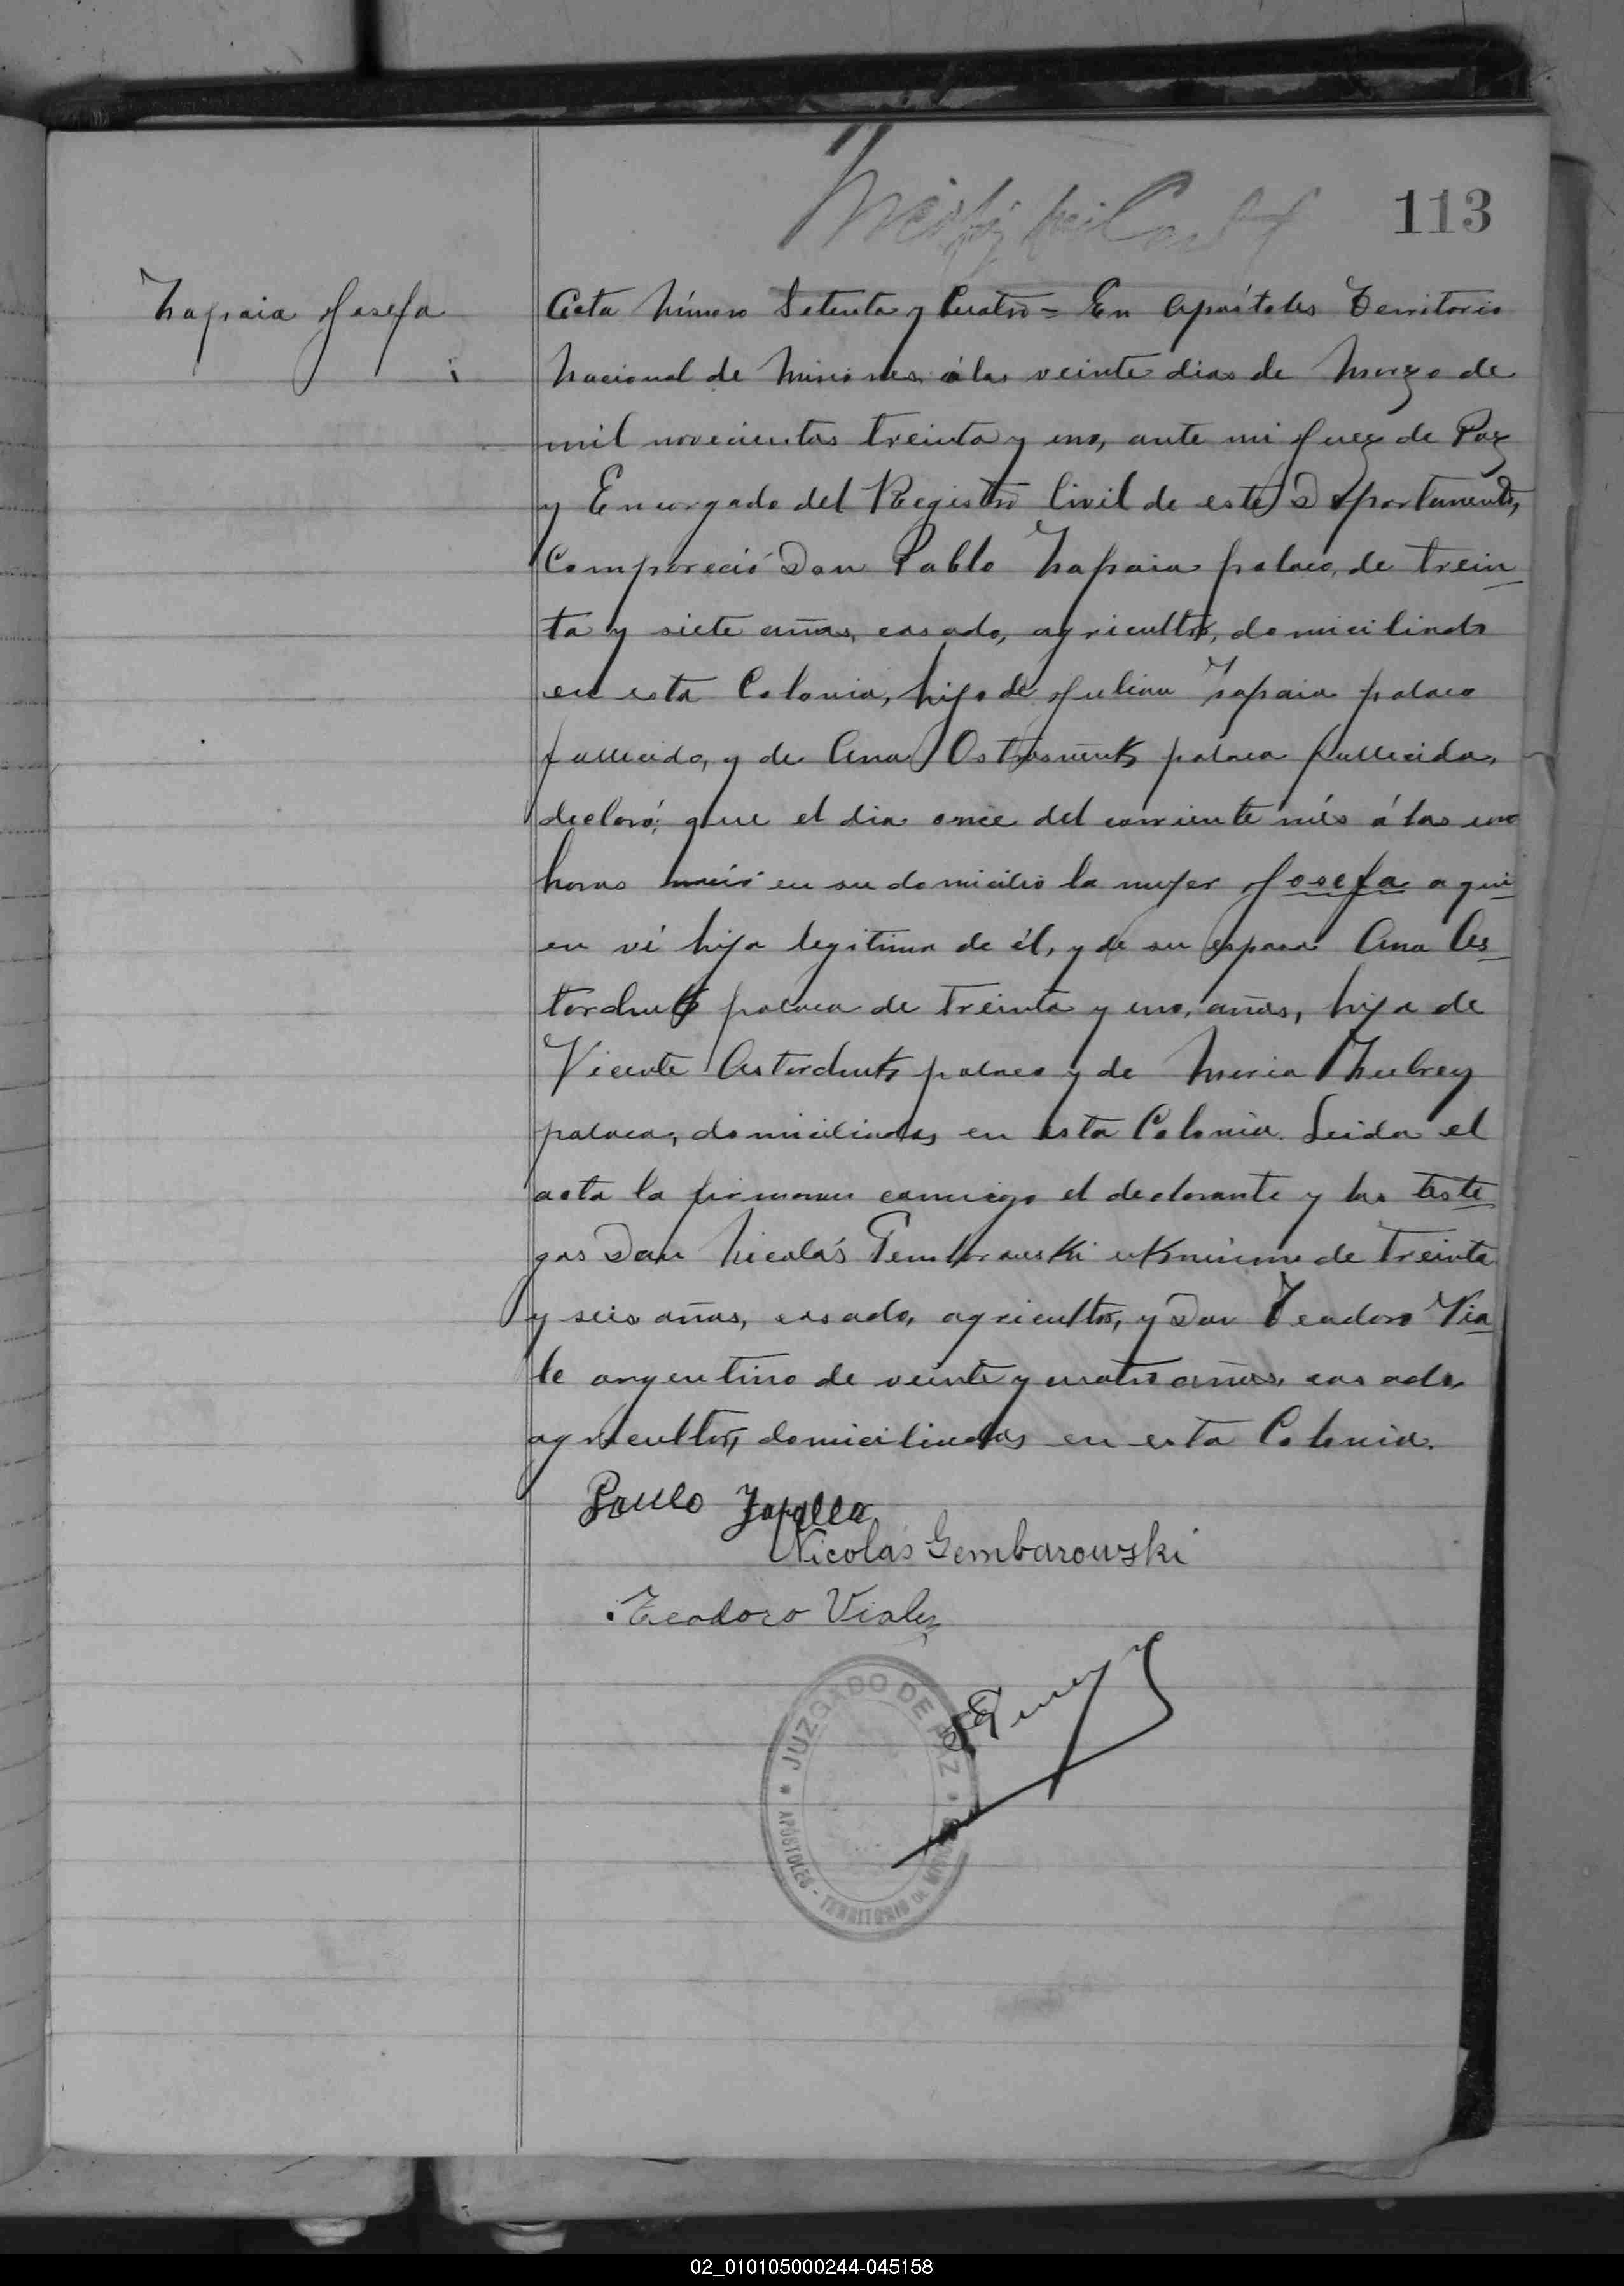 113
Zapaia Josefa
Acta Número Setenta y Cuatro = En Apóstoles Territorio
Nacional de Misiones á los veinte dias de Marzo de
mil novecientos treinta y uno, ante mi Juez de Paz
y Encargado del Registro Civil de este Departamento,
Compareció Don Pablo Zapaia polaco, de trein
ta y siete años, casado, agricultor, domiciliado
en esta Colonia, hijo de Julian Zapaia polaco
fallecido, y de Ana polaca fallecida,
declaró: que el dia once del corriente més á las uno
horas nació en su domicilio la mujer Josefa a qui
en ví hija legitima de él, y de su esposa Ana As
torchuk polaca de treinta y uno, años, hija de
Vicente Astorchuk polaco y de Maria
polaca, domiciliados en esta Colonia. Leida el
acta la firmaron conmigo el declarante y los testi
gos Don Nicolás Gembarauski ukraniano de treinta
y seis años, casado, agricultor, y Don Teodoro Via
le argentino de veinte y cuatro años, casado,
agricultor, domiciliados en esta Colonia.
Paulo
Nicolás Gembarowski
Teodoro Viale
JUZGADO DE PAZ
APÓSTOLES - TERRITORIO DE MISIONES
02_010105000244-045158